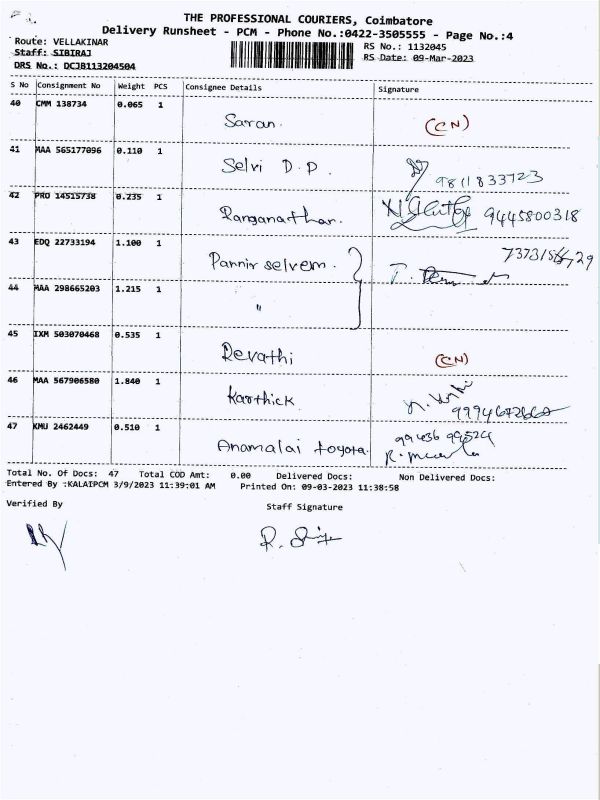 THE PROFESSIONAL COURIERS, Coimbatore
Delivery Runsheet - PCM - Phone No.:0422-3505555 - Page No.:4
Route: VELLAKINAR
RS No.: 1132045
Staff: SIBIRAJ
RS Date: 09-Mar-2023
DRS No.: DCJB113204504
S No Consignment No Weight PCS Consignee Details Signature
40 CMM 138734 0.065 1 Saran. (CN)
41 MAA 565177096 0.110 1 Selvi D.P. 9811833723
42 PRO 14515738 0.235 1 Ranganathan. 9445800318
43 EDQ 22733194 1.100 1 Pannir selvem.
44 MAA 298665203 1.215 1 "
45 IXM 503070468 0.535 1 Revathi (CN)
46 MAA 567906580 1.840 1 Karthick
47 KMU 2462449 0.510 1 Anamalai toyota.
Total No. Of Docs: 47 Total COD Amt: 0.00 Delivered Docs: Non Delivered Docs:
Entered By :KALAIPCM 3/9/2023 11:39:01 AM Printed On: 09-03-2023 11:38:58
Verified By Staff Signature